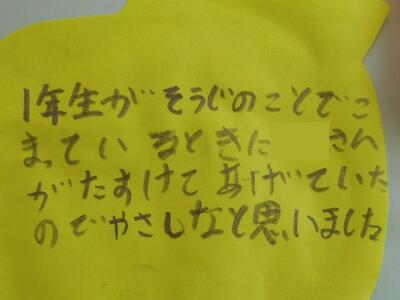 1年生がそうじのことでこ
まっているときに　　さん
がたすけてあげていた
のでやさしなと思いました